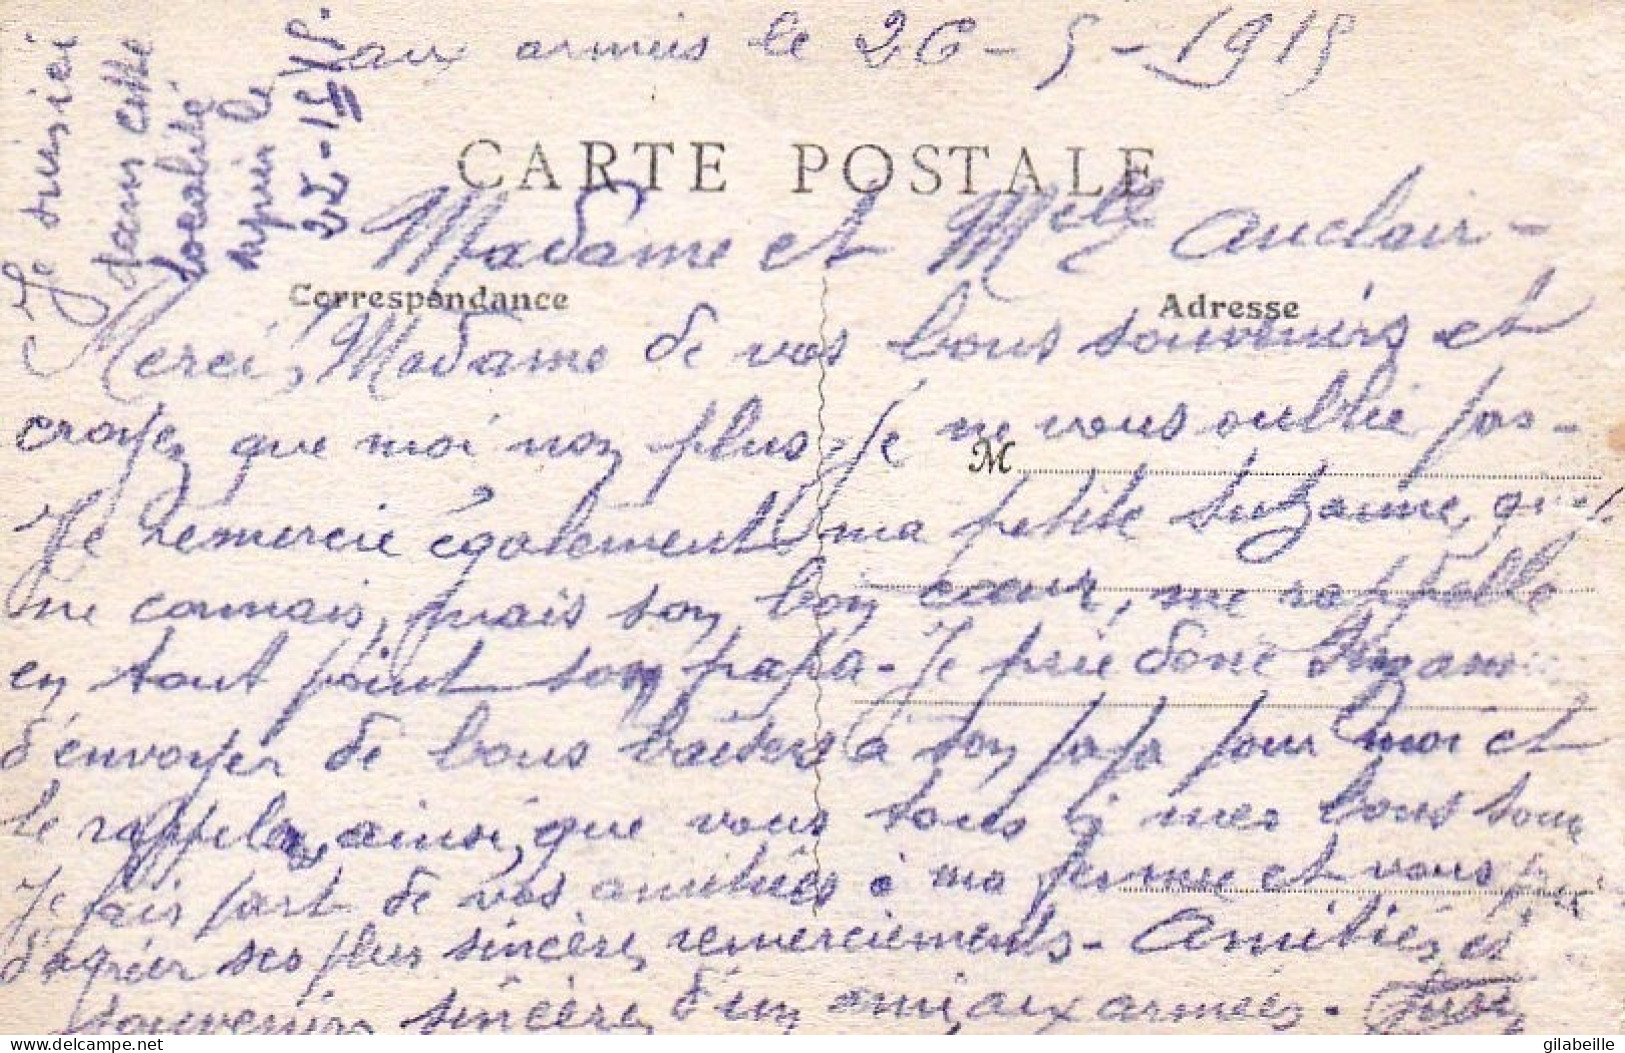 aux armées le 26-5-1915
Je suis ici
dans cette
localité
depuis le
22-15
CARTE POSTALE
Madame et Melle Auclair -
Correspondance
Adresse
Merci, Madame de vos bons souvenirs et
croyez que moi non plus Je ne vous oublie pas -
M
Je remercie également ma petite Suzanne, que j.
ne connais, mais son bon cœur, me rappelle
en tout point son papa - Je prie donc
d'envoyer de bons baisers à son papa pour moi et
le rappeler, ainsi, que vous tous à mes bons souv
Je fais part de vos amitiés à ma femme et vous prie
d'agréer ses plus sincères remerciements - Amitiés et
souvenirs sincères d'un ami aux armées -
www.delcampe.net
gilabeille